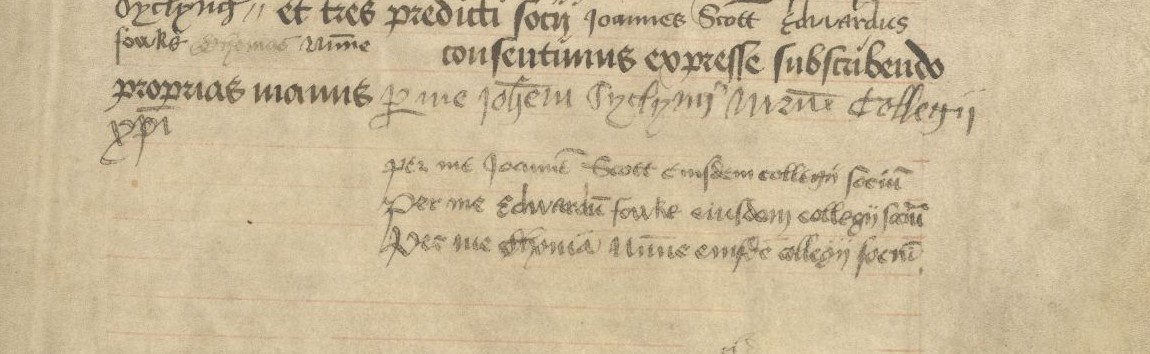 Syclyng // et tres predicti socij Joannes Scott Edwardus
fowke Thomas Nu̅ne consentimus expresse subscribendo
proprias manus per me Joh̅em Syclyng M̅r̅m̅ Collegii
xp̅i
per me Joanne̅ Scott eiusdem collegij sociu̅
Per me Edwardu̅ fowke eiusdem collegij sociu̅
Per me Thoma̅ Nu̅ne eiusde̅ collegij sociu̅